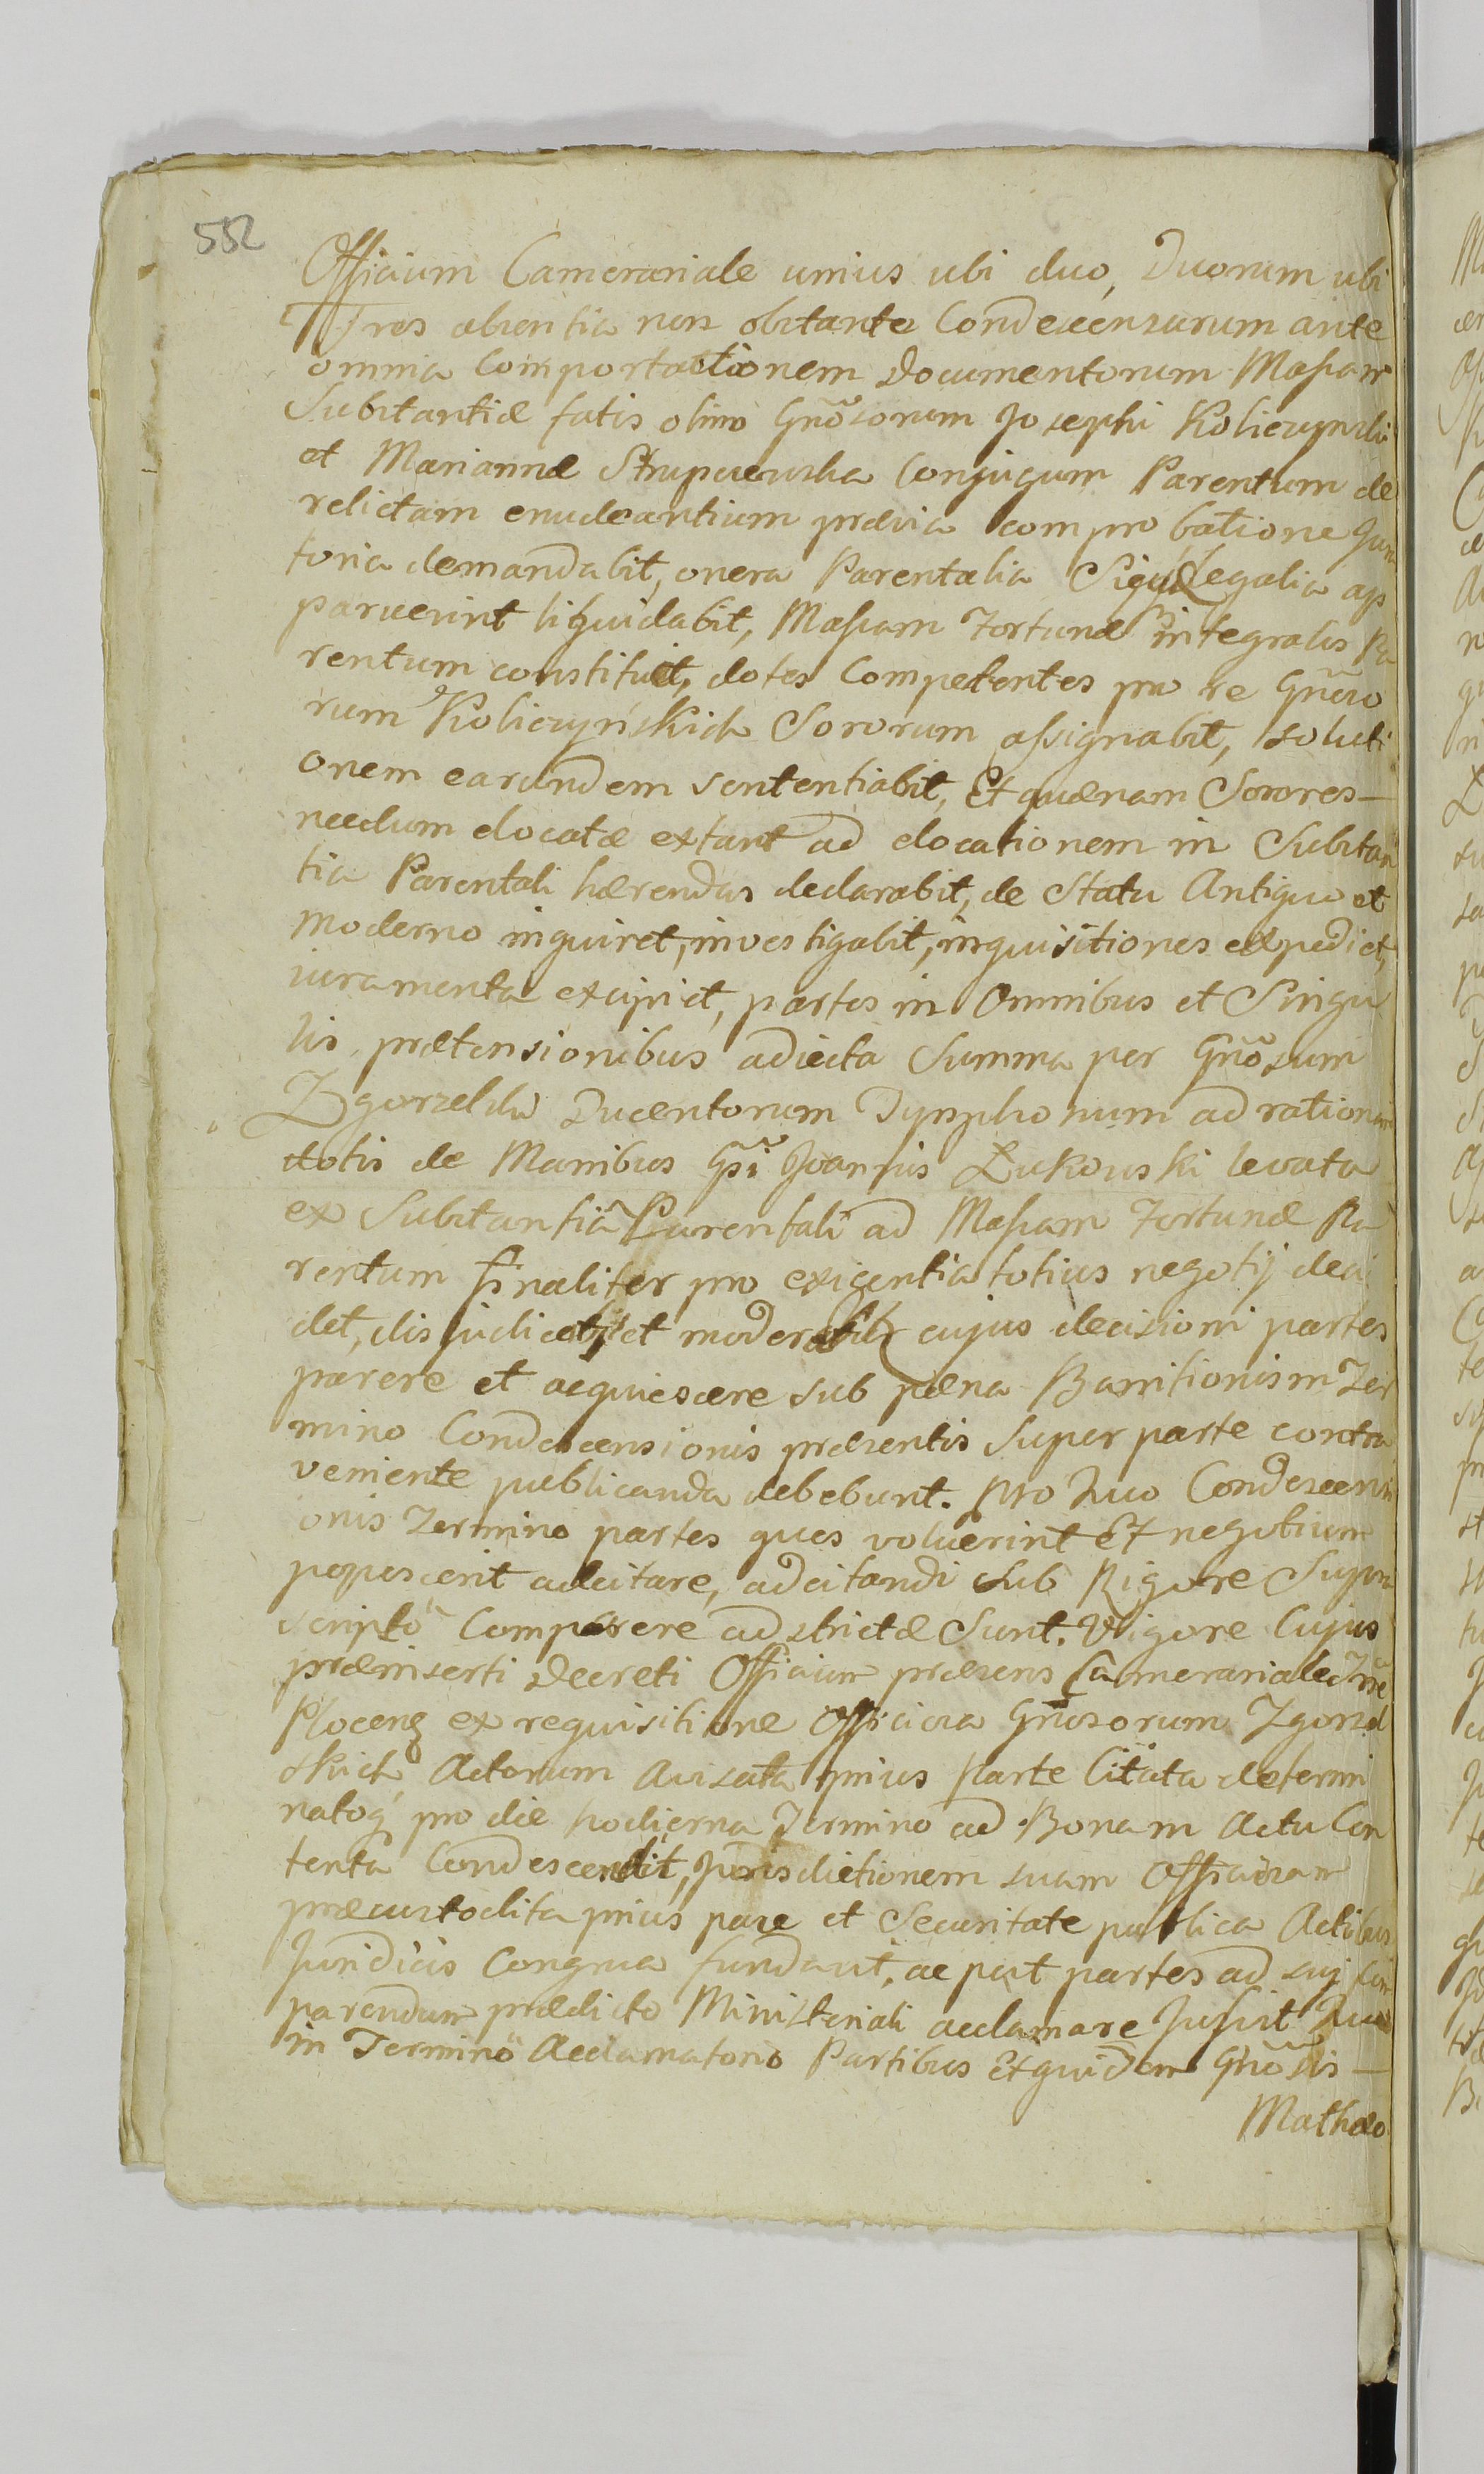 552
Officium Camerariale unius ubi duo, Duorum ubi
Tres absentia non obstante Condescensurum ante
omnia Comportationem Documentorum Massam
Substantiæ fatis olim Gñosorum Josephi Koliczynski
et Mariannæ Strupczewska Conjugum Parentum de
relictam enudeantium prævia comprobatione Jura
toria demandabit, onera Parentalia Siquæ Legalia ap
paruerint liquidabit, Massam Fortunæ integralis Pa
rentum constituet, dotes Competentes pro re Gñoso
rum Koliczyńskich Sororum assignabit, soluti
onem earundem sententiabit, Et quænam Sorores—
necdum elocatæ extant ad elocationem in Substan
tia Parentali hærendas declarabit, de Statu Antiquo et
moderno inquiret, investigabit, inquisitiones expediet,
iuramenta excipiet, partes in Omnibus et Singu
lis prætensionibus adiecta Summa per Gñosum
Zgorzelski Ducentorum Tynphonum ad rationem
dotis de Manibus Gsi Joannis Łukowski levata
ex Substantia Parentali ad Massam Fortunæ Pa
rentum finaliter pro exigentia totius negotij deci
det, disjudicabit et moderabit cujus decisioni partes
parere et acquiescere sub pæna Bannitionis in Ter
mino Condescensionis præsentis Super parte contra
veniente publicanda debebunt. Pro Quo Condescensi
onis Termino partes quos voluerint Et negotium
poposcerit adcitare, adcitandi sub Rigore Supra
scripto Comparere adstrictæ Sunt. Vigore Cujus
præinserti Decreti Officium præsens Camerariale Trræ
Plocens ex requisitione Officiosa Gñosorum Zgorzel
skich Actorum avisata prius parte Citata determi
natoq pro die hodierna Termino ad Bonam Actu Con
tenta Condescendit, Jurisdictionem suam Officiosam
præcustodita prius pace et Securitate publica Actibus
Juridicis Congrua fundavit, ac post partes ad sui com
parendum prædicto Ministeriali acclamare Jussit Quo
in Termino Acclamatorio Partibus Et quidem Gñosis—
Mathæo